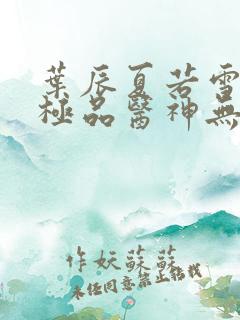 葉辰夏若雪
極品醫神無
作妖蘇蘇
未经同意禁止转载